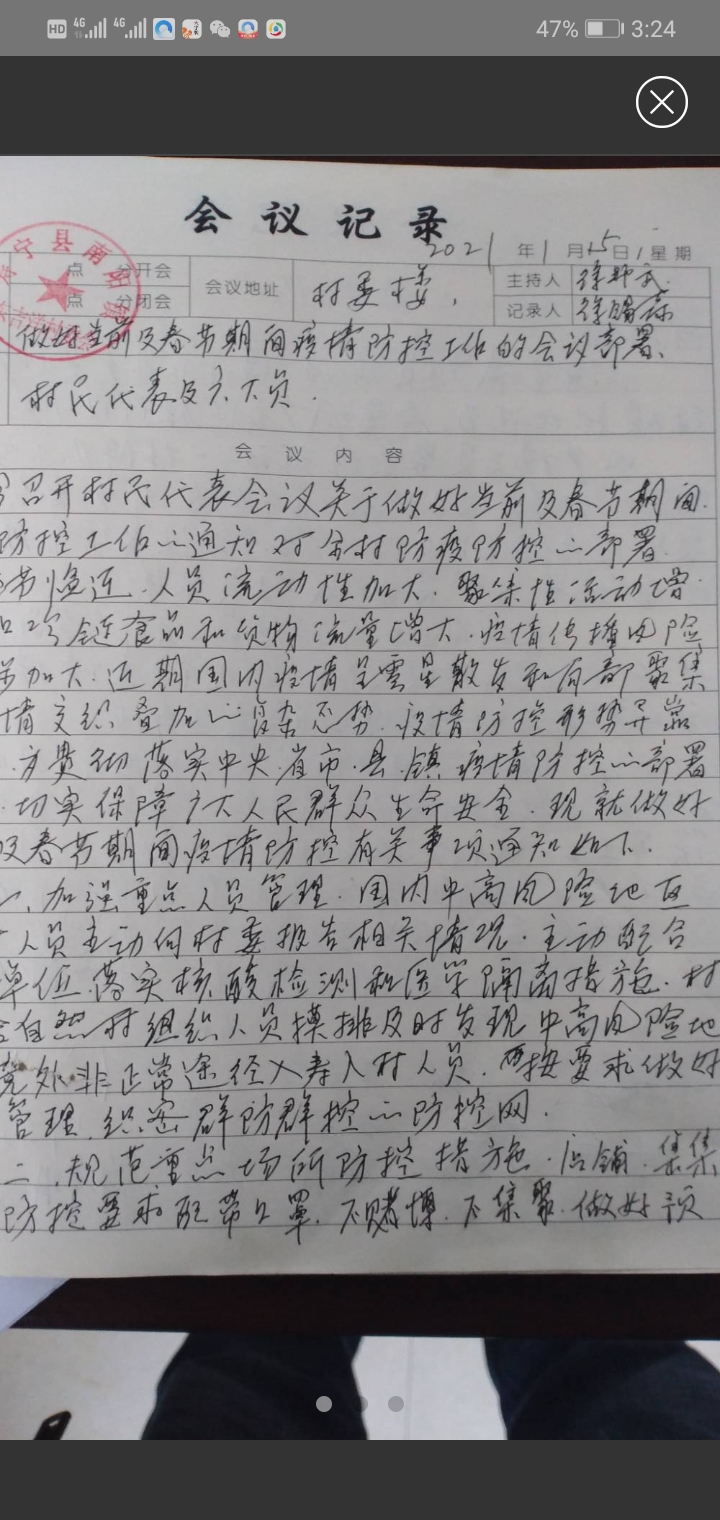 HD 4G 4G 47% 3:24
会议记录
2021 年 1 月 15 日 星期
宁县南
点 分开会 会议地址 村委楼 主持人
点 分闭会 记录人
做好当前及春节期间疫情防控工作的会议部署
村民代表及 员
会议内容
召开村民代表会议关于做好当前及春节期间
防控工作的通知对全村防疫防控的部署
节临近.人员流动性加大.聚集性活动增
口冷链食品和货物流量增大.疫情传播风险
加大.近期国内疫情呈零星散发和局部聚集
情交织叠加的复杂态势.疫情防控形势异常
.为贯彻落实中央.省市.县.镇疫情防控的部署
.切实保障广大人民群众生命安全.现就做好
及春节期间疫情防控有关事项通知如下.
一、加强重点人员管理.国内中高风险地区
人员主动向村委报告相关情况.主动配合
单位落实核酸检测和医学隔离措施.村
自然村组织人员摸排及时发现中高风险地
境外.非正常途径入 入村人员.严按要求做好
管理.织密群防群控的防控网.
二.规范重点场所防控措施.店铺.集集
防控要求配带口罩.不赌博.不集聚.做好预